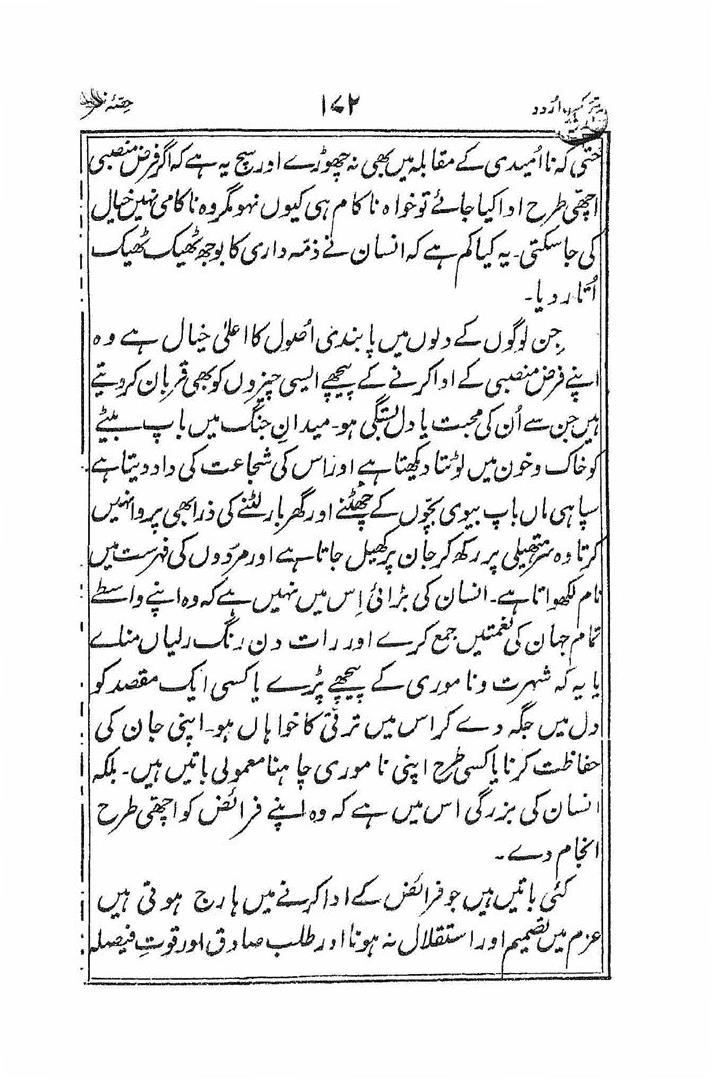 اُردو ۱۷۲ حصّۂ
حتیٰ کہ نا اُمیدی کے مقابلہ میں بھی نہ چھوڑے اور سچ یہ ہے کہ اگر فرض منصبی
اچھّی طرح ادا کیا جائے تو خواہ ناکام ہی کیوں نہو مگر وہ ناکامی نہیں خیال
کی جا سکتی۔ یہ کیا کم ہے کہ انسان نے ذمّہ داری کا بوجھ ٹھیک ٹھیک
اُتار دیا۔
جِن لوگوں کے دلوں میں پابندیِ اُصول کا اعلیٰ خیال ہے وہ
اپنے فرض منصبی کے ادا کرنے کے پیچھے ایسی چیزوں کو بھی قربان کر دیتے
ہیں جن سے اُن کی محبت یا دل بستگی ہو۔ میدانِ جنگ میں باپ بیٹے
کو خاک و خون میں لوٹتا دیکھتا ہے اور اس کی شجاعت کی داد دیتا ہے۔
سپاہی ماں باپ بیوی بچّوں کے چھٹنے اور گھر بار لٹنے کی ذرا بھی پروا نہیں
کرتا وہ سر ہتھیلی پر رکھ کر جان پر کھیل جاتا ہے اور مرَدوں کی فہرست میں
نام لکھواتا ہے۔ انسان کی بڑائی اِس میں نہیں ہے کہ وہ اپنے واسطے
تمام جہان کی نعمتیں جمع کرے اور رات دن رنگ رلیاں منائے
یا یہ کہ شہرت و ناموری کے پیچھے پڑے یا کسی ایک مقصد کو
دل میں جگہ دے کر اس میں ترقّی کا خواہاں ہو۔ اپنی جان کی
حفاظت کرنا یا کسی طرح اپنی ناموری چاہنا معمولی باتیں ہیں۔ بلکہ
انسان کی بزرگی اس میں ہے کہ وہ اپنے فرائض کو اچھّی طرح
انجام دے۔
کئی باتیں ہیں جو فرائض کے ادا کرنے میں ہارج ہوتی ہیں
عزم میں تصمیم اور استقلال نہ ہونا اور طلب صادق اور قوتِ فیصلہ